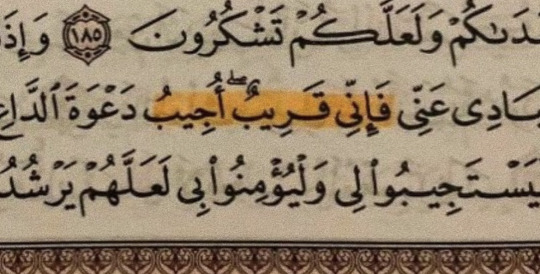 هَدَىٰكُمْ وَلَعَلَّكُمْ تَشْكُرُونَ ١٨٥ وَإِذَا
عِبَادِى عَنِّى فَإِنِّى قَرِيبٌ ۖ أُجِيبُ دَعْوَةَ ٱلدَّاعِ
فَلْيَسْتَجِيبُوا۟ لِى وَلْيُؤْمِنُوا۟ بِى لَعَلَّهُمْ يَرْشُدُونَ